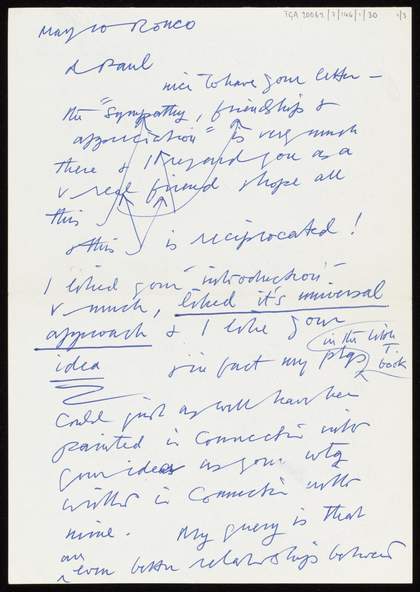 TGA 20069/7/146/1/30 1/3
May 10 RONCO
d Paul
nice to have your letter –
the "sympathy, friendship &
appreciation" is very much
there & I regard you as a
v real friend & hope all
this
& this is reciprocated!
I liked your "introduction"
v much, liked it's universal
approach & I like your
in the
idea & in fact my ptgs book
could just as well have been
painted in connection with
your ideas as your wtg
written in connection with
mine. My query is that
an
even better relationship between